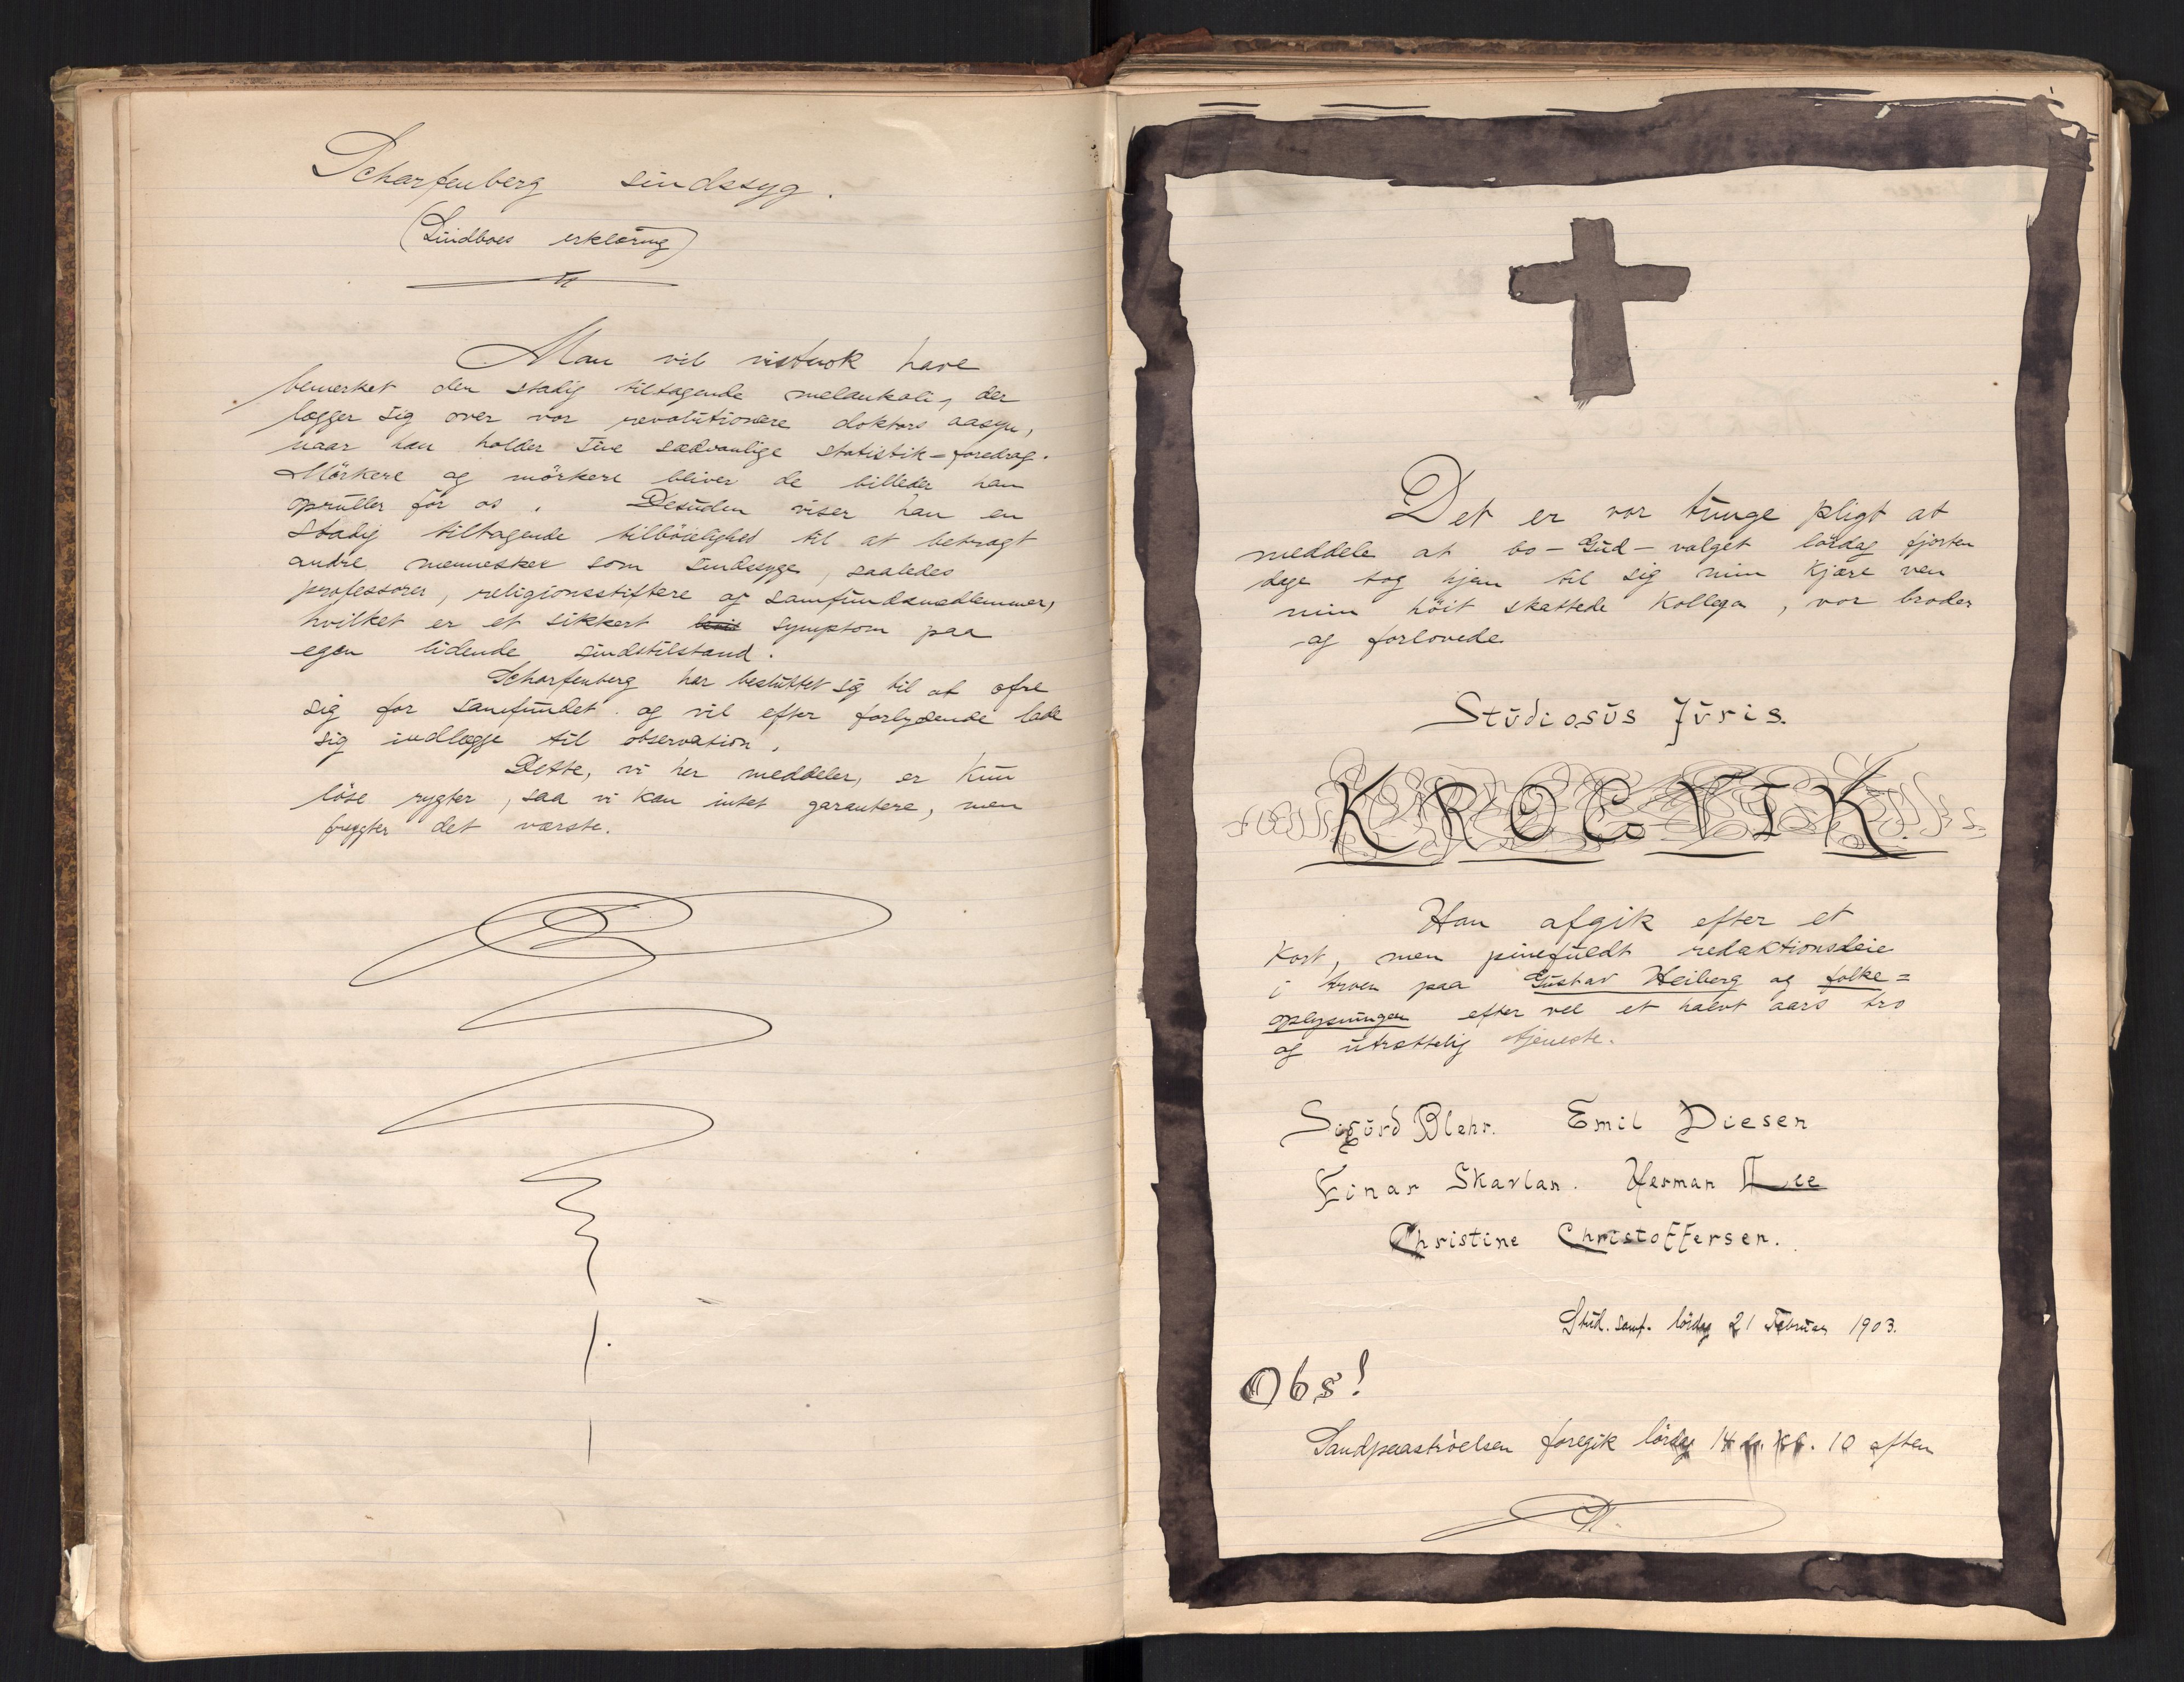 Scharfenberg sindssyg.
(Lindboes erklæring)
Man vil vistnok have
bemerket den stadig tiltagende melankoli, der
lægger sig over vor revolutionære doktors aasyn,
naar han holder sine sædvanlige statistik-foredrag.
Mörkere og mörkere bliver de billeder han
opruller for os. Desuden viser han en
stadig tiltagende tilböielighed til at betragt
andre mennesker som sindssyge, saaledes
professorer, religionsstiftere og samfundsmedlemmer,
hvilket er et sikkert symptom paa
egen lidende sindstilstand.
Scharfenberg har besluttet sig til at ofre
sig for samfundet og vil efter forlydende lade
sig indlægge til observation.
Dette, vi her meddeler, er kun
löse rygter, saa vi kan intet garantere, men
frygter det værste.
Det er vor tunge pligt at
meddele at bo-Gud-valget lördag fjorten
dage tog hjem til sig min kjære ven
min höit skattede kollega, vor broder
og forlovede
Studiosus Juris.
KROGVIK.
Han afgik efter et
kort, men pinefuldt redaktionsleie
i troen paa Gustav Heiberg og folke=
oplysningen efter vel et halvt aars tro
og utrættelig tjeneste.
Sigurd Blehr. Emil Diesen
Einar Skavlan. Herman Lie
Christine Christoffersen.
Stud. samf. lördag 21 Februar 1903.
Obs!
Sandpaaströelsen foregik lördag 14 kl. 10 aften